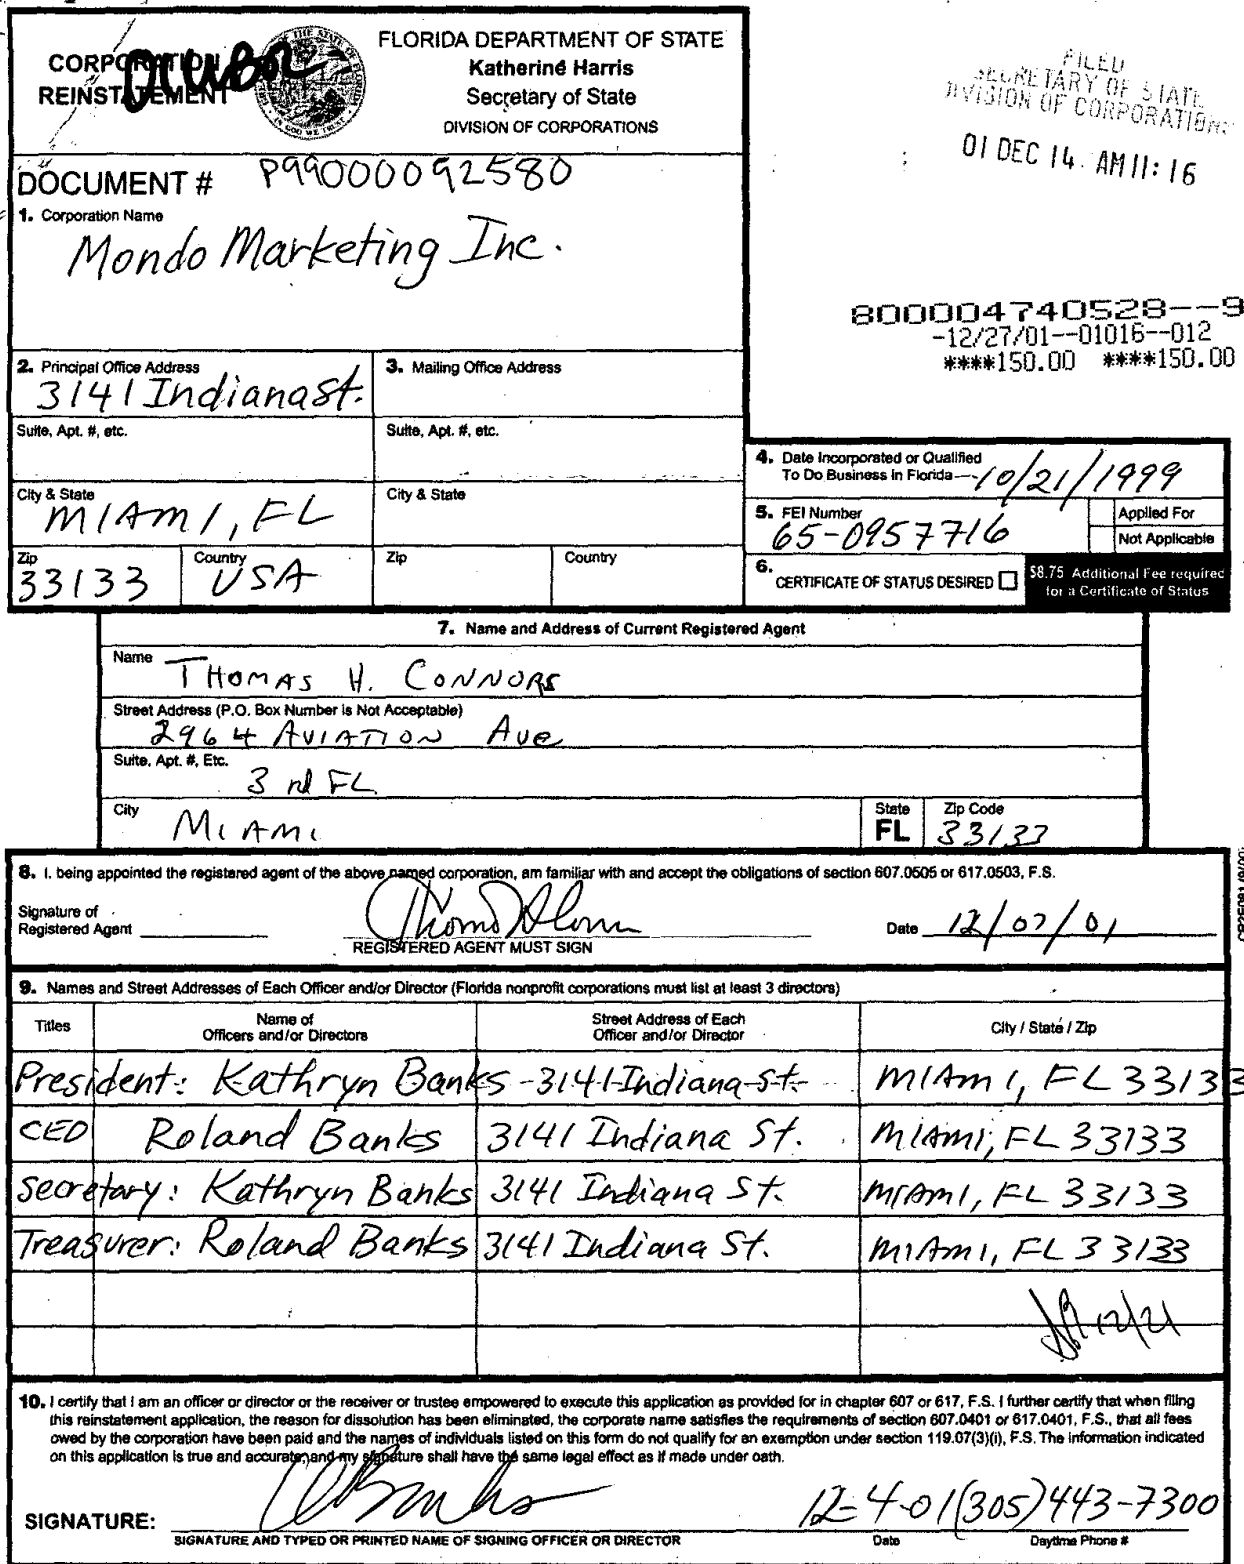 CORPORATION
REINSTATEMENT
FLORIDA DEPARTMENT OF STATE
Katherine Harris
Secretary of State
DIVISION OF CORPORATIONS
FILED
SECRETARY OF STATE
DIVISION OF CORPORATIONS
01 DEC 14 AM 11: 16
DOCUMENT # P99000092580
1. Corporation Name
Mondo Marketing Inc.
800004740528--9
-12/27/01--01016--012
****150.00 ****150.00
2. Principal Office Address
3141 Indiana St.
3. Mailing Office Address
Suite, Apt. #, etc.
Suite, Apt. #, etc.
City & State
MIAMI, FL
City & State
Zip
33133
Country
USA
Zip
Country
4. Date Incorporated or Qualified
To Do Business in Florida 10/21/1999
5. FEI Number
65-0957716
Applied For
Not Applicable
6. CERTIFICATE OF STATUS DESIRED
$8.75 Additional Fee required
for a Certificate of Status
7. Name and Address of Current Registered Agent
Name THOMAS H. CONNORS
Street Address (P.O. Box Number is Not Acceptable)
2964 AVIATION Ave
Suite, Apt. #, Etc.
3 rd FL.
City MIAMI
State
FL
Zip Code
33133
8. I, being appointed the registered agent of the above named corporation, am familiar with and accept the obligations of section 607.0505 or 617.0503, F.S.
Signature of
Registered Agent
REGISTERED AGENT MUST SIGN
Date 12/07/01
9. Names and Street Addresses of Each Officer and/or Director (Florida nonprofit corporations must list at least 3 directors)
Titles
Name of
Officers and/or Directors
Street Address of Each
Officer and/or Director
City / State / Zip
President: Kathryn Banks - 3141 Indiana St. MIAMI, FL 33133
CEO Roland Banks 3141 Indiana St. MIAMI, FL 33133
Secretary: Kathryn Banks 3141 Indiana St. MIAMI, FL 33133
Treasurer: Roland Banks 3141 Indiana St. MIAMI, FL 33133
12/21
10. I certify that I am an officer or director or the receiver or trustee empowered to execute this application as provided for in chapter 607 or 617, F.S. I further certify that when filing
this reinstatement application, the reason for dissolution has been eliminated, the corporate name satisfies the requirements of section 607.0401 or 617.0401, F.S., that all fees
owed by the corporation have been paid and the names of individuals listed on this form do not qualify for an exemption under section 119.07(3)(i), F.S. The information indicated
on this application is true and accurate, and my signature shall have the same legal effect as if made under oath.
SIGNATURE:
12-4-01 (305) 443-7300
SIGNATURE AND TYPED OR PRINTED NAME OF SIGNING OFFICER OR DIRECTOR
Date
Daytime Phone #